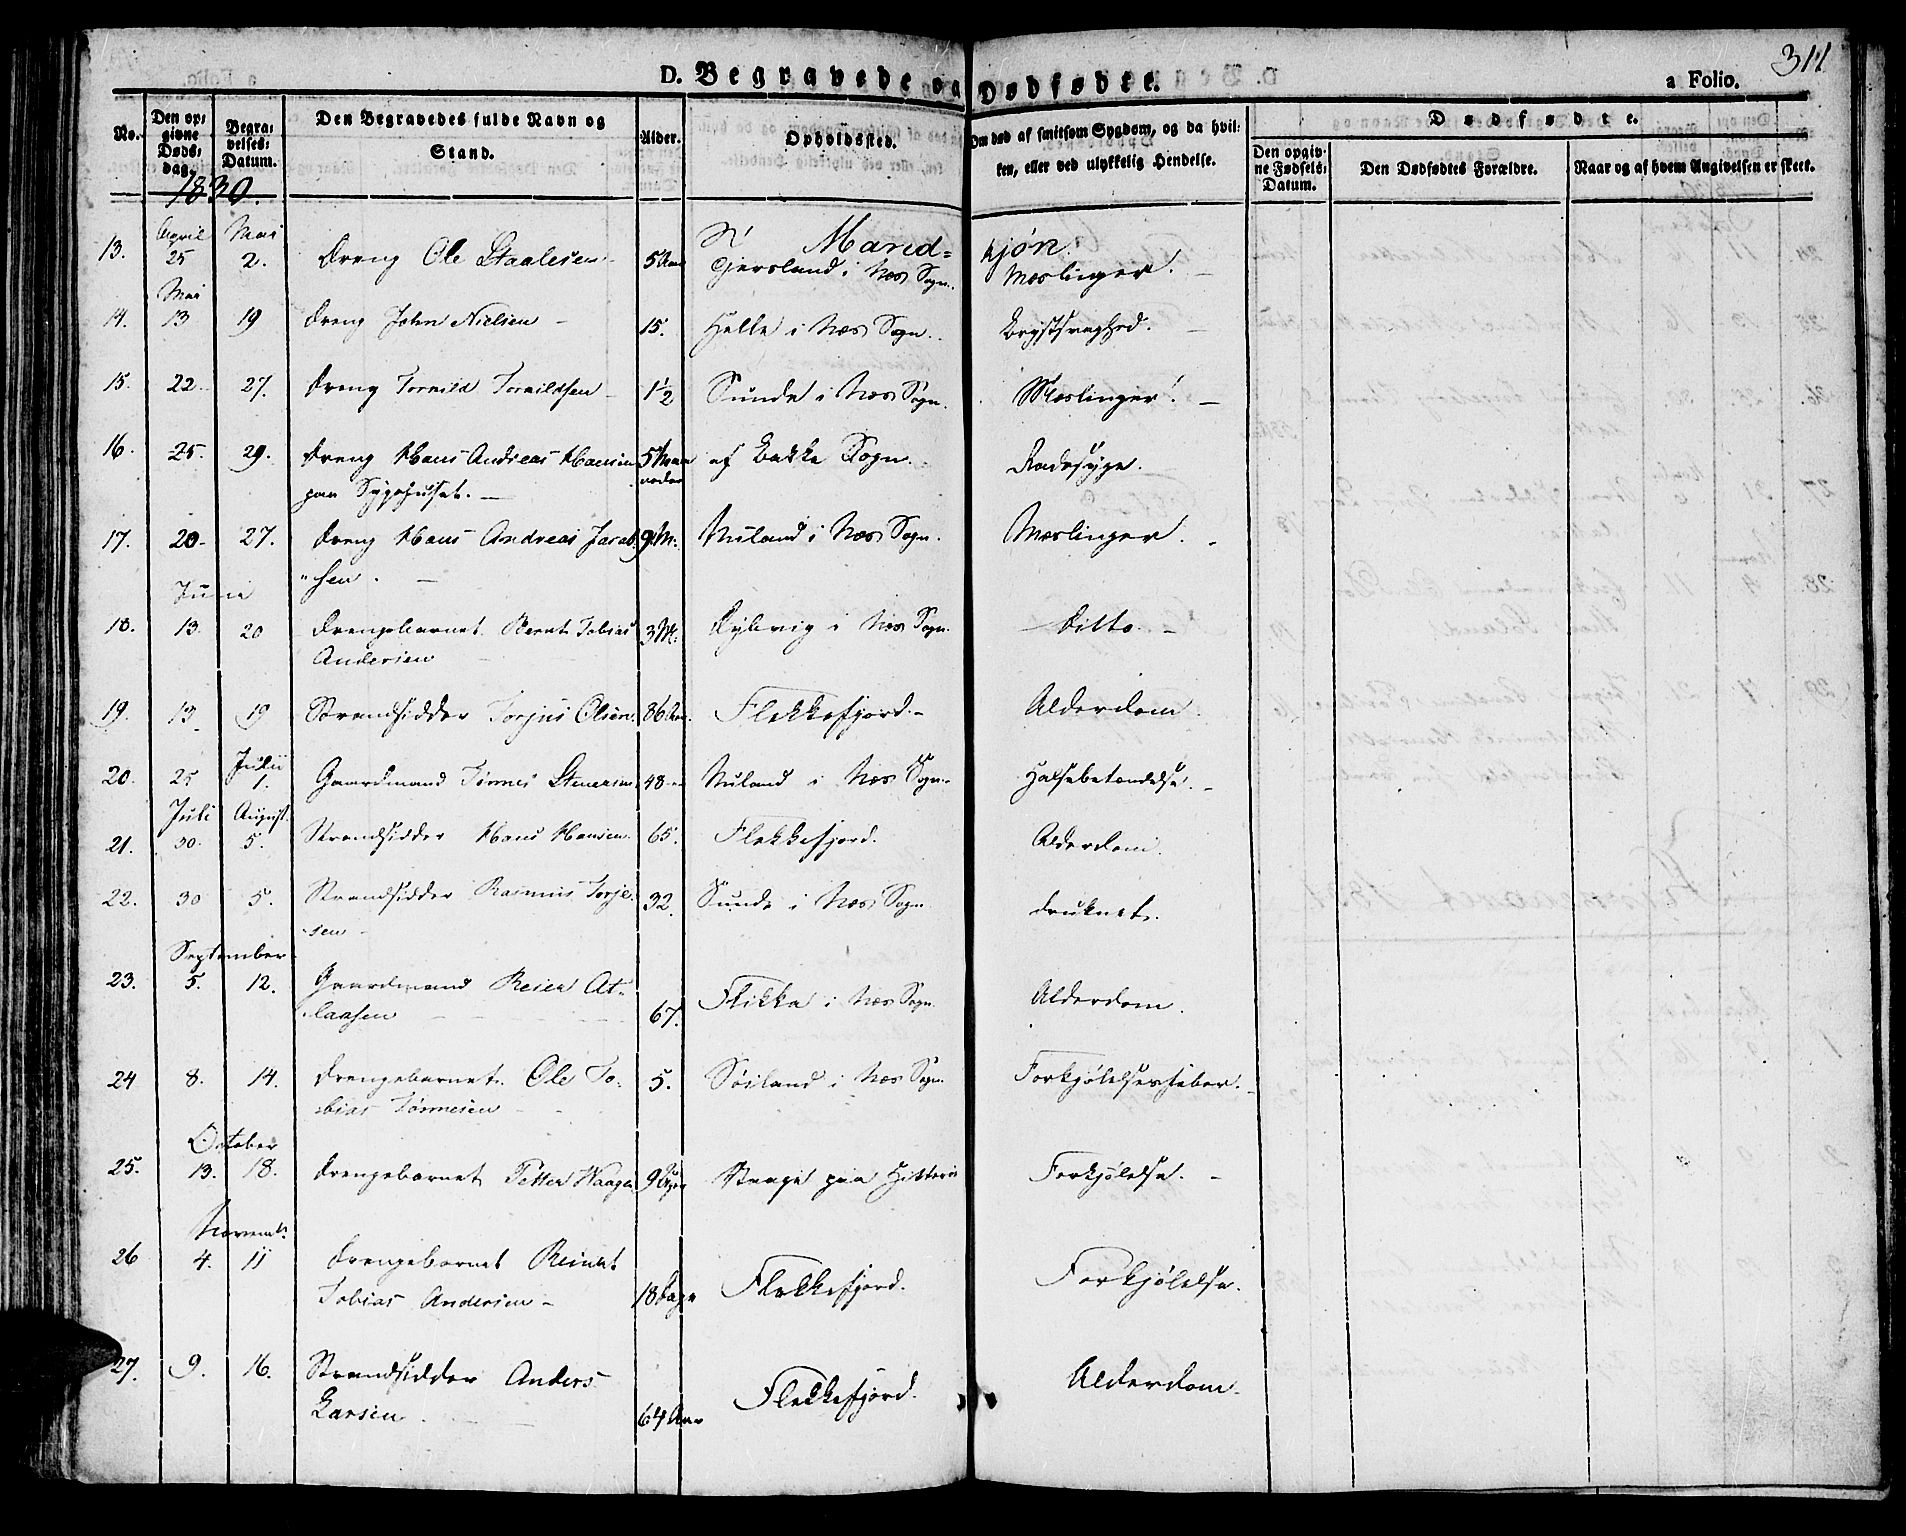 311
D. Begravede og Dødfødte.
a Folio.
No.
Den op:
givne
Døds:
dag.
Begra:
velses:
Datum.
Den Begravedes fulde Navn og
Stand.
Alder.
Opholdssted.
Om død af smitsom Sygdom, og da hvil:
ken, eller ved ulykkelig Hendelse.
Dødfødte.
Den opgiv:
ne Fødsels:
Datum.
Den Dødfødtes Forældre.
Naar og af hvem Angivelsen er skeet.
1830.
April Mai
Mand=kjøn.
13. 25 2. Dreng Ole Staalesen 5 Aar Gjersland i Næs Sogn. Mæslinger.
Mai
14. 13 19 Dreng John Nielsen 15. Helle i Næs Sogn. Brystsvaghed.
15. 22 27. Dreng Tornild Tornildsen 1½ Sunde i Næs Sogn. Mæslinger.
16. 25 29. Dreng Hans Andreas Hansen 5 Maa
neder af Bakke Sogn. Radesyge.
paa Sygehuset.
17. 20 27. Dreng Hans Andreas Jacob
sen. 9 M: Nuland i Næs Sogn. Mæslinger.
Junii
18. 13 20 Drengebarnet Bernt Tobias
Andersen 3 M: Dybvig i Næs Sogn. Ditto.
19. 13 19 Strandsidder Torjus Olsen 86 Aar. Flekkefjord. Alderdom.
Julii
20. 25 1. Gaardmand Tønnes Stenersen 48 Nuland i Næs Sogn. Halsebetændelse.
Juli August
21. 30. 5. Strandsidder Hans Hansen 65. Flekkefjord. Alderdom.
22. 30 5. Strandsidder Rasmus Torje-
sen 32. Sunde i Næs Sogn. druknet.
September
23. 5. 12. Gaardmand Reier At-
laksen 67. Flikka i Næs Sogn. Alderdom.
24 8. 14. Drengebarnet Ole To-
bias Tønnesen 5. Søiland i Næs Sogn. Forkjølelsesfeber.
October
25. 13. 18. Drengebarnet Petter Waage 9 Uger Waage paa Hitterø Forkjølelse.
Novemb:
26 4. 11 Drengebarnet Reinert
Tobias Andersen 18 Dage Flekkefjord. Forkjølelse.
27. 9. 16. Strandsidder Anders
Larsen 64 Aar Flekkefjord. Alderdom.